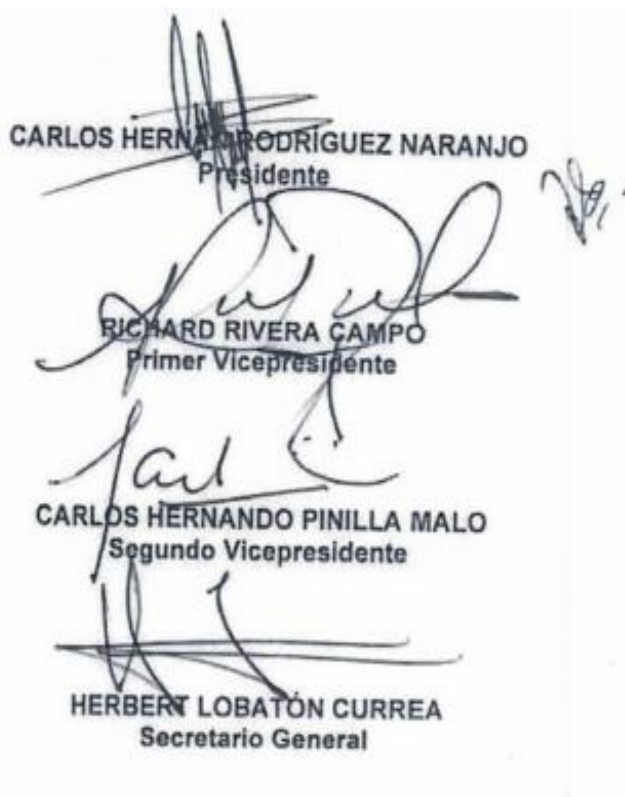 CARLOS HERNÁN RODRÍGUEZ NARANJO
Presidente
RICHARD RIVERA CAMPO
Primer Vicepresidente
CARLOS HERNANDO PINILLA MALO
Segundo Vicepresidente
HERBERT LOBATÓN CURREA
Secretario General